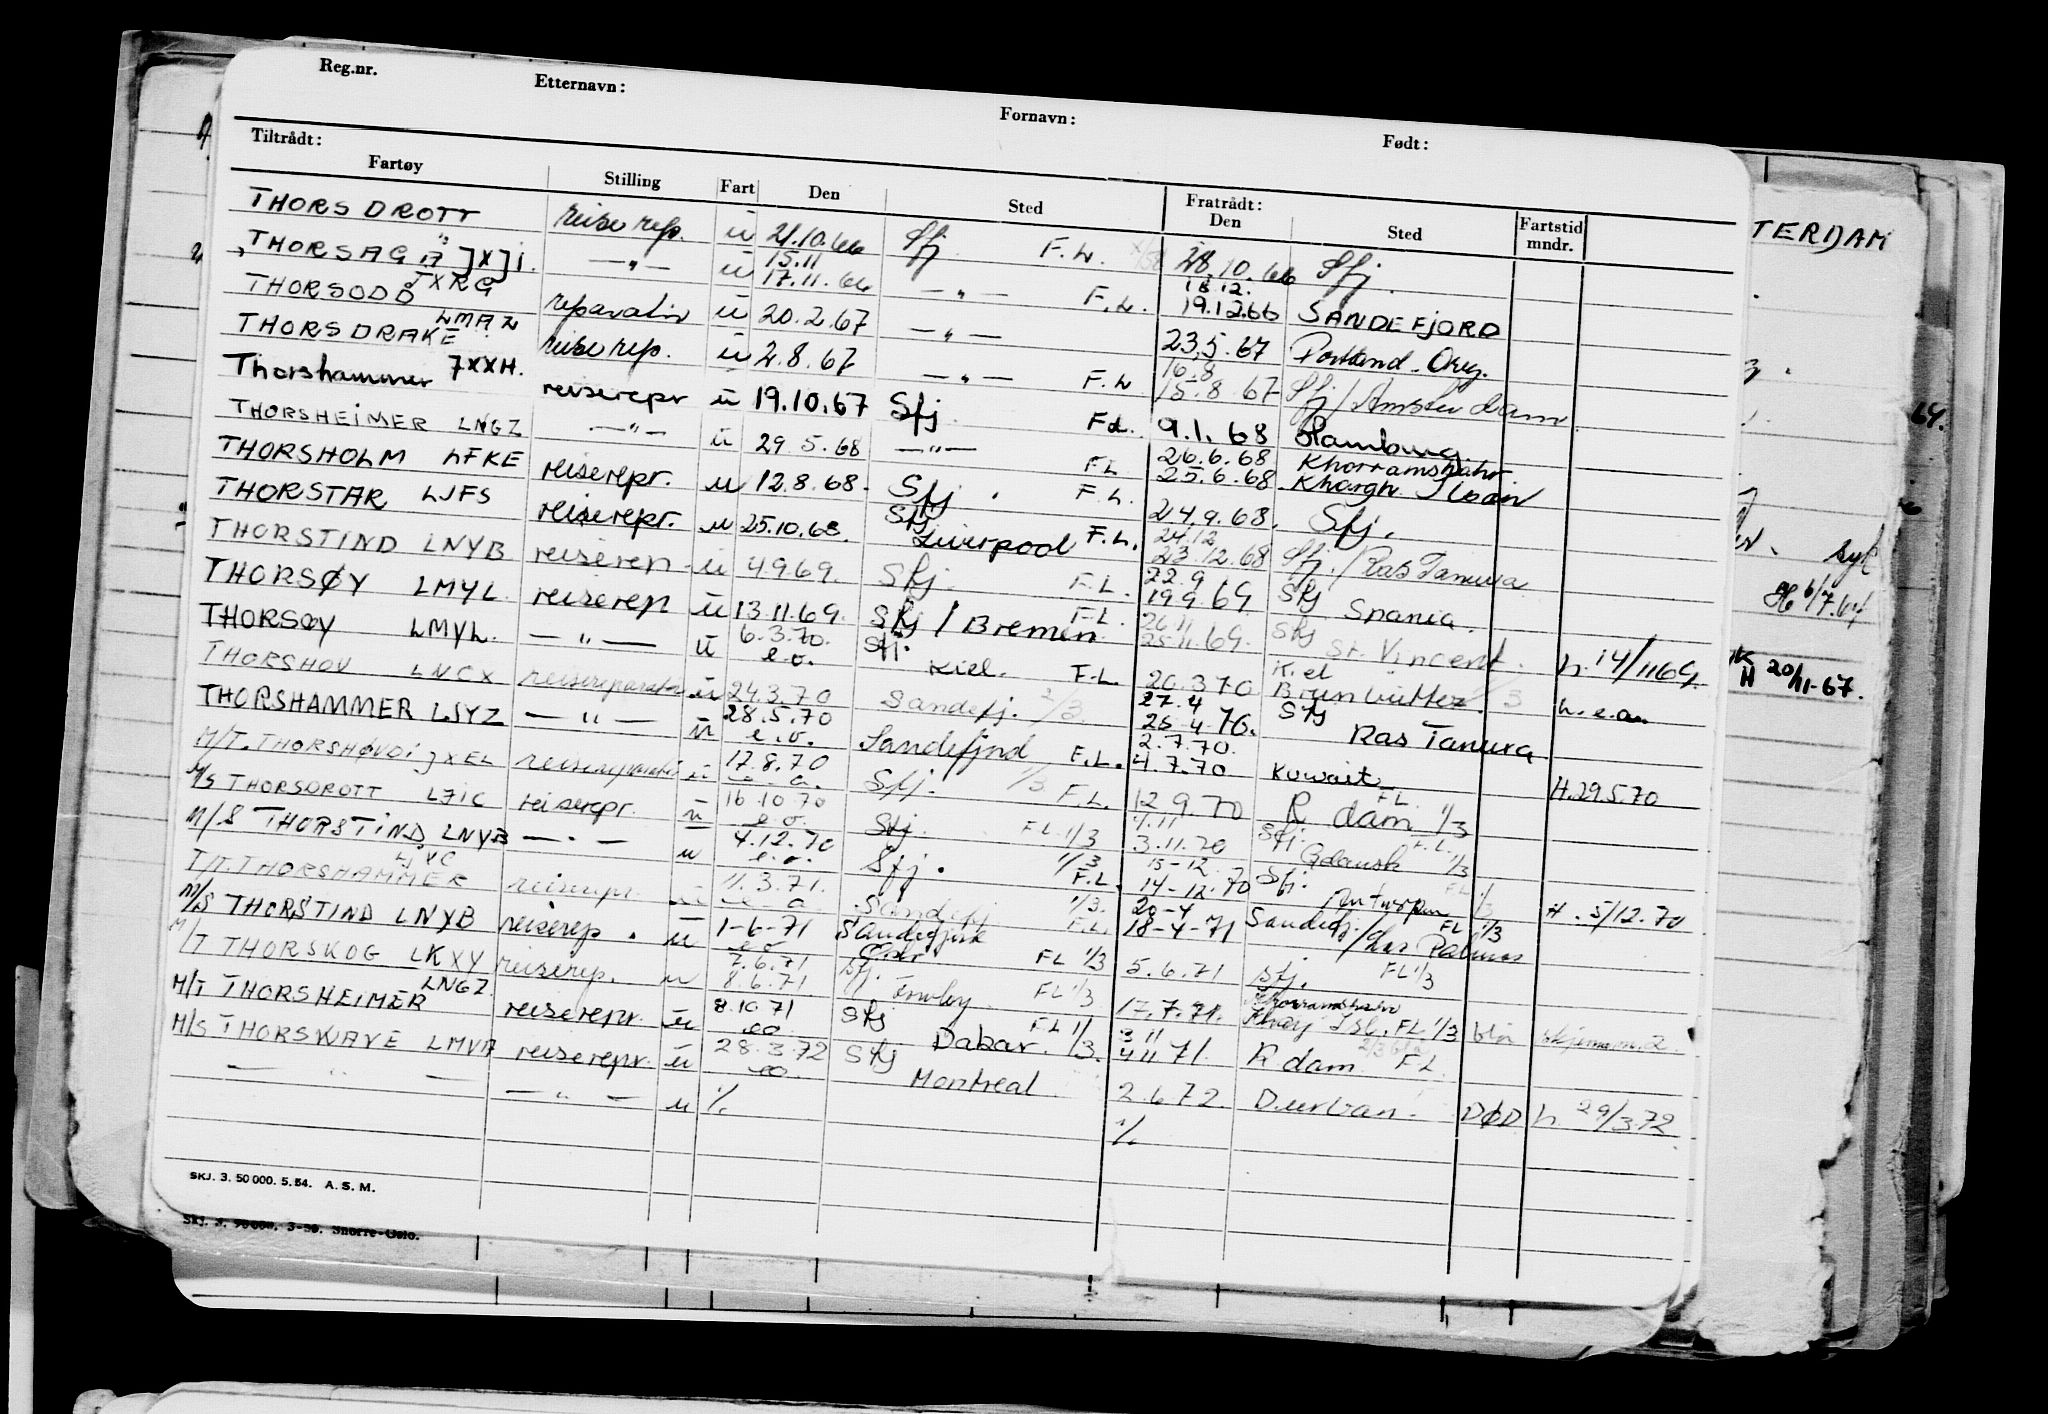 Reg.nr. Etternavn: Fornavn: Født:
Tiltrådt: Fratrådt:
Fartøy Stilling Fart Den Sted Den Sted Fartstid mndr.
THORSDROTT reise rep. u 21.10.66 Sfj. F.L. 28.10.66 Sfj.
THORSAG JXJI. —"— u 15.11 17.11.66 —"— F.L. 18.12. 19.12 66 SANDEFJORD
THORSODD JXRG reparatør u 20.2.67 —"— 23.5.67 Portland. Oreg.
THORSDRAKE LMAN reise rep. u 2.8.67 —"— F.L 16.8 15.8.67 Sfj/Amsterdam
Thorshammer JXXH. reiserepr u 19.10.67 Sfj F.L. 9.1.68 Hamburg
THORSHEIMER LNGZ —"— u 29.5.68 —"— FL 26.6.68 Khorramshahr 25.6.68 Khargh
THORSHOLM LFKE reiserepr. u 12.8.68. Sfj. F.L. 24.9.68. Sfj.
THORSTAR LJFS reiserepr. u 25.10.68. Sfj Liverpool F.L. 24.12 23.12.68 Sfj./Ras Tanura
THORSTIND LNYB reiserep. u 4.9.69. Sfj. F.L. 22.9 19.9.69 Sfj Spania.
THORSØY LMYL. reiserep u 13.11.69. Sfj/Bremen F.L. 26.11 25.11.69. Sfj St. Vincent. h. 14/11 69
THORSØY LMYL. —"— u 6.3.70. e.o. Sfj. Kiel. F.L. 20.3 70 Kiel Brunbüttel h.e.a.
THORSHOV LNCX reisereparatør u 24.3.70 Sandefj. 2/3. 27.4 25-4.70. Sfj Ras Tanura
THORSHAMMER LJYZ —"— u 28.5.70 e.o. Sandefjord F.L. 2.7.70. 4.7.70 Kuwait H.29.5.70
M/T. THORSHØVDI JXEL reisereparatør u 17.8.70 Sfj. 1/3 F.L. 12.9.70 R dam FL 1/3
M/S THORSDROTT LJIC reiserepr. u 16.10.70 e.o. Sfj. FL.1/3 7.11 3.11.70 Sfj. Gdansk F.L. 1/3
M/S THORSTIND LNYB —"— u 4.12.70 e.o. Sfj. 1/3 F.L. 15-12. 14-12.70 Sfj. Antwerpen FL 1/3 H. 5/12.70
T/T. THORSHAMMER reiserepr. u 11.3.71. Sandefj 1/3. F.L. 20-4 18-4-71 Sandefj./Las Palmas FL 1/3
M/S THORSTIND LNYB reiserep. u 1-6-71 e.o. Sandefjord FL 1/3 5.6.71 Sfj. FL 1/3
M/T THORSKOG LKXY reiserep. u 7.6.71 8.6.71 Sfj. FL 1/3 17.7.71. Kharj Isl. FL 1/3
M/T THORSHEIMER LNGZ reiserepr. u 8.10.71 eo Sfj Dakar. FL 1/3. 3 11 4 11 71. R dam FL
M/S THORSWAVE LMVA reiserepr. u 28.3.72 eo. Sfj Montreal 2.6.72. Durban. DØD h. 29/3.72
— " — — " — u % %
SKJ. 3. 50 000. 5.54. A. S. M.
Snorre-Oslo.
TERDAM
64.
syk
6/7.64
H 20/11-67.